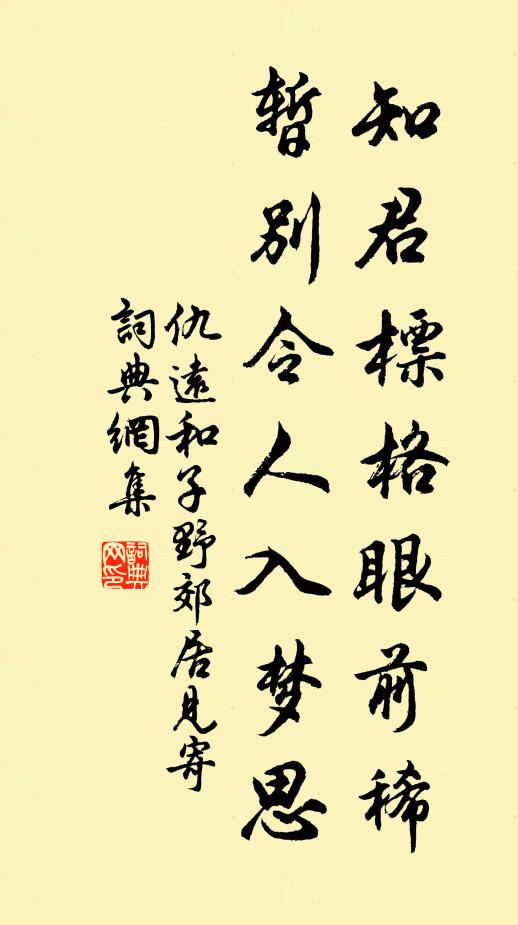 知君標格眼前稀
暫別令人入梦思
仇遠和子野郊居見寄
詞典網集
詞典网印